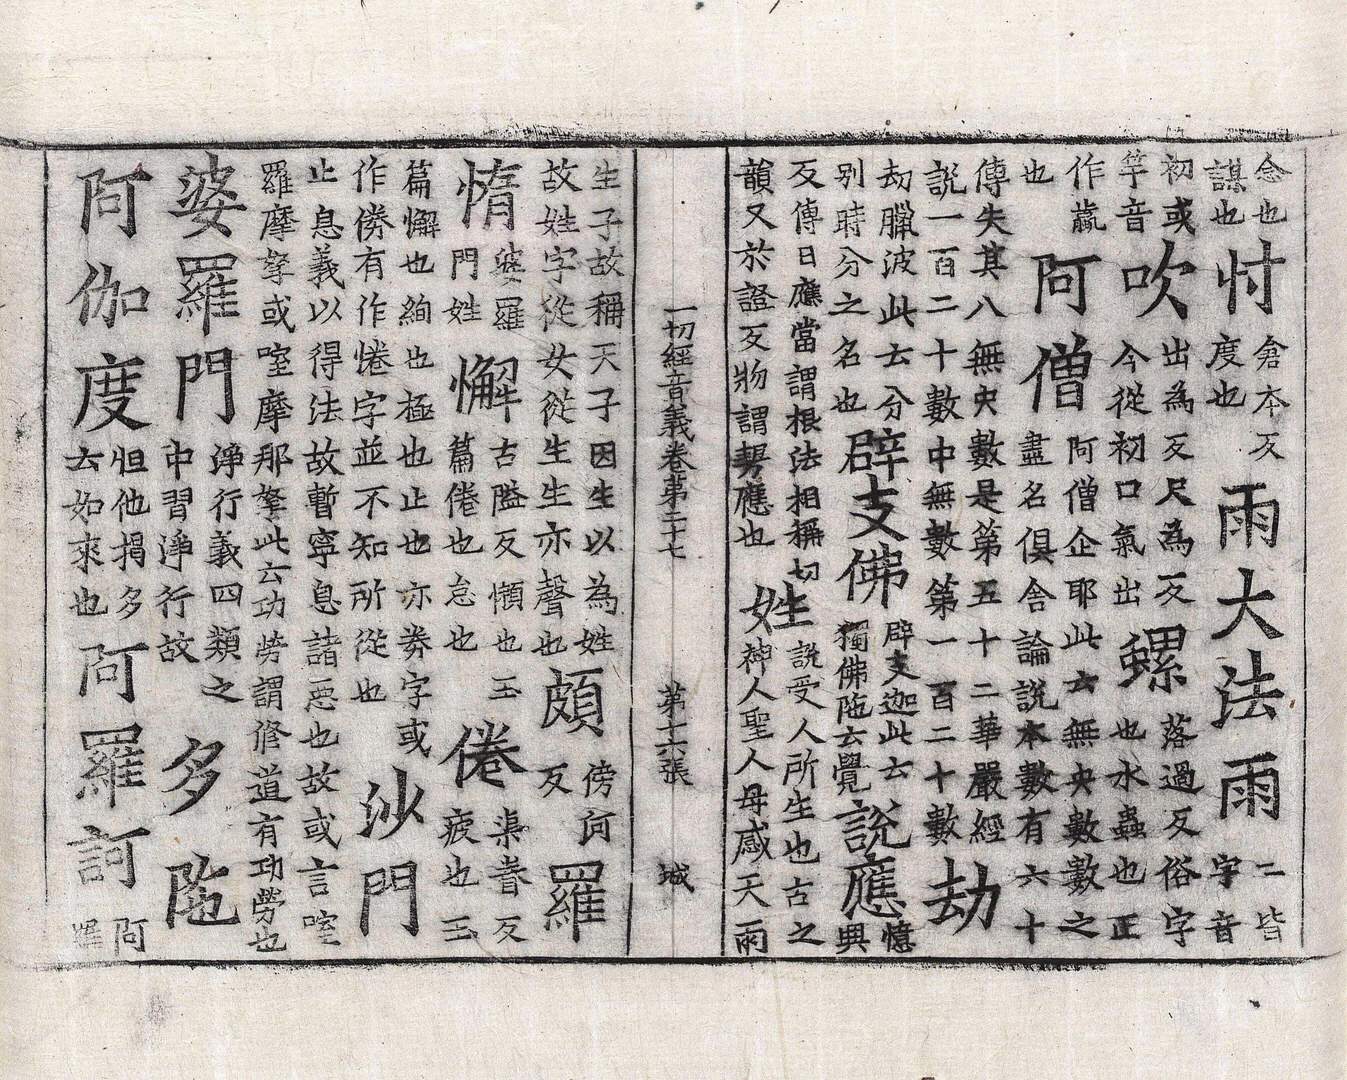 念也謀也忖倉本反度也雨大法雨二皆字音
初或竽音吹出為反尺為反今從初口氣出螺落過反俗字也水蟲也正
作蠃也阿僧阿僧企耶此云無央數數之盡名俱舍論說本數有六十
傳失其八無央數是第五十二華嚴經說一百二十數中無數第一百二十數劫
劫臘波此云分別時分之名也辟支佛辟支迦此云獨佛陁云覺說應憶興
反傳曰應當謂根法相稱切韻又於證反物謂應也姓說受人所生也古之神人聖人母感天而
一切經音義卷第二十七 第十六張 城
生子故稱天子因生以為姓故姓字從女從生生亦聲也頗傍河反羅
惰婆羅門姓懈古隘反懶也玉篇倦也怠也倦渠眷反疲也玉
篇懈也絢也極也止也亦劵字或作傍有作惓字並不知所從也沙門
止息義以得法故暫寧息諸惡也故或言㗌羅摩拏或㗌摩那拏此云功勞謂修道有功勞也
婆羅門淨行義四類之中習淨行故多陁
阿伽度怛他揭多云如來也阿羅訶阿羅